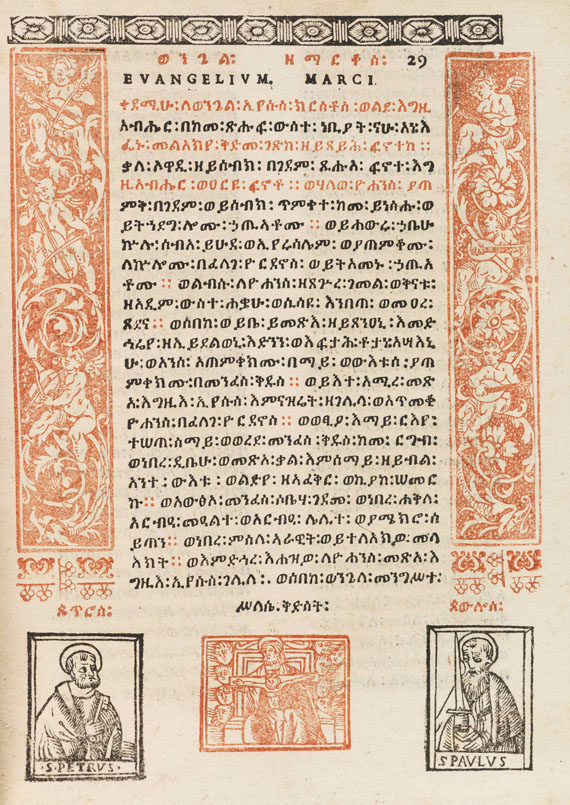 ወንጌል፡ ዘማርቆስ፡ 29
EVANGELIVM. MARCI
ቀደሚሁ፡ ለወንጌል፡ ኢየሱስ፡ ክርስቶስ፡ ወልደ፡ እግዚ
አብሔር፡ በከመ፡ ጽሑፍ፡ ውስተ፡ ነቢያት፡ ናሁ፡ አነ፡ እ
ፌኑ፡ መልአክየ፡ ቅድመ፡ ገጽከ፡ ዘይጸይሕ፡ ፍኖተከ ።
ቃለ፡ ዐዋዲ፡ ዘይሰብክ፡ በገዳም፡ ጺሑአ፡ ፍኖተ፡ እግ
ዚአብሔር፡ ወዐርዩ፡ ፍኖቶ ። ወሃለወ፡ ዮሐንስ፡ ያጠ
ምቅ፡ በገዳም፡ ወይሰብክ፡ ጥምቀተ፡ ከመ፡ ይነስሑ፡ ወ
ይትኀደግ፡ ሎሙ፡ ኃጢአቶሙ ። ወይሐውሩ፡ ኀቤሁ
ኵሉ፡ ሰብአ፡ ይሁዳ፡ ወኢየሩሳሌም፡ ወያጠምቆሙ፡
ለኵሎሙ፡ በፈለገ፡ ዮርዳኖስ፡ ወይትአመኑ፡ ኃጢአ
ቶሙ ። ወልብሱ፡ ለዮሐንስ፡ ዘጸጕረ፡ ገመል፡ ወቅናቱ፡
ዘአዲም፡ ውስተ፡ ሐቋሁ፡ ወሲሳዩ፡ አንበጣ፡ ወመዐረ፡
ጸደና ። ወሰበከ፡ ወይቤ፡ ይመጽእ፡ ዘይጸንዐኒ፡ እምድ
ኅሬየ፡
ሁ፡ ወአንሰ፡ አጠምቀክሙ፡ በማይ፡ ወውእቱሰ፡ ያጠ
ምቀክሙ፡ በመንፈስ፡ ቅዱስ ። ወይእተ፡ አሚረ፡ መጽ
አ፡ እግዚእ፡ ኢየሱስ፡ እምናዝሬት፡ ዘገሊላ፡ ወአጥመቆ
ዮሐንስ፡ በፈለገ፡ ዮርዳኖስ ። ወወፂኦ፡ እማይ፡ ርእየ፡
ተሠጠ፡ ሰማይ፡ ወወረደ፡ መንፈስ፡ ቅዱስ፡ ከመ፡ ርግብ፡
ወነበረ፡ ዲቤሁ፡ ወመጽአ፡ ቃል፡ እምሰማይ፡ ዘይብል፡
አንተ፡ ውእቱ፡ ወልድየ፡ ዘአፈቅር፡ ወኪያከ፡ ሠመር
ኩ ። ወአውፅኦ፡ መንፈስ፡ ሶቤሃ፡ ገዳመ፡ ወነበረ፡ ሐቅለ፡
አርብዓ፡ መዓልተ፡ ወአርብዓ፡ ሌሊተ፡ ወያሜክሮ፡ ሰ
ይጣን ። ወነበረ፡ ምስለ፡ አራዊት፡ ወይተለአክዎ፡ መላ
እክት ። ወእምድኅረ፡ አኀዝዎ፡ ለዮሐንስ፡ መጽአ፡ እ
ግዚእ፡ ኢየሱስ፡ ገሊላ ። ወሰበከ፡ ወንጌለ፡ መንግሥተ፡
ሥላሴ፡ ቅድስት፡
ጴጥሮስ፡ ጳውሎስ፡
S. PETRVS. S PAVLVS